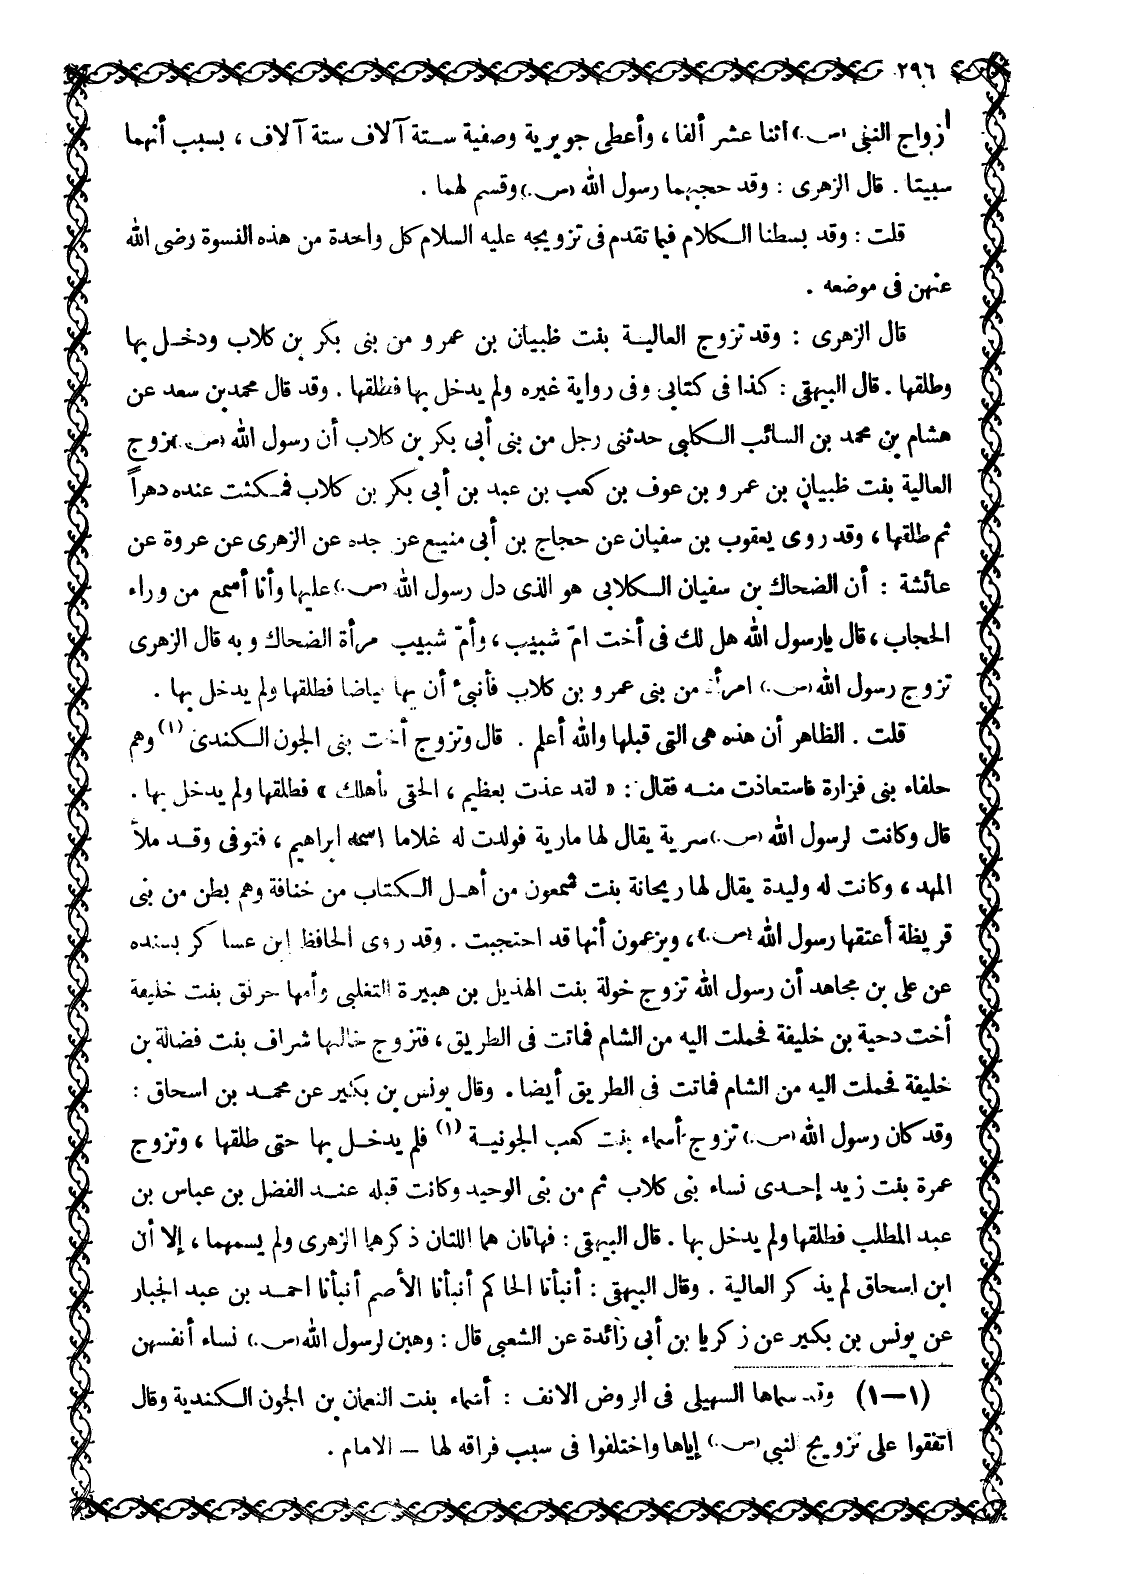 ٢٩٦
أزواج النبي (ص.) اثنا عشر ألفا ، وأعطى جويرية وصفية ستة آلاف ستة آلاف ، بسبب أنهما
سبيتا . قال الزهرى : وقد حجبهما رسول الله (ص.) وقسم لهما .
قلت : وقد بسطنا الكلام فيما تقدم فى تزويجه عليه السلام كل واحدة من هذه النسوة رضى الله
عنهن فى موضعه .
قال الزهرى : وقد تزوج العالية بنت ظبيان بن عمرو من بنى بكر بن كلاب ودخل بها
وطلقها . قال البيهقى : كذا فى كتابى وفى رواية غيره ولم يدخل بها فطلقها . وقد قال محمد بن سعد عن
هشام بن محمد بن السائب الكلبى حدثنى رجل من بنى أبى بكر بن كلاب أن رسول الله (ص.) تزوج
العالية بنت ظبيان بن عمرو بن عوف بن كعب بن عبد بن أبى بكر بن كلاب فمكثت عنده دهراً
ثم طلقها ، وقد روى يعقوب بن سفيان عن حجاج بن أبى منيع عن جده عن الزهرى عن عروة عن
عائشة : أن الضحاك بن سفيان الكلابى هو الذى دل رسول الله (ص.) عليها وأنا أسمع من وراء
الحجاب ، قال يارسول الله هل لك فى أخت امّ شبيب ، وأمّ شبيب مرأة الضحاك وبه قال الزهرى
تزوج رسول الله (ص.) امرأة من بنى عمرو بن كلاب فأنبئ أن بها بياضا فطلقها ولم يدخل بها .
قلت . الظاهر أن هذه هى التى قبلها والله أعلم . قال وتزوج أخت بنى الجون الكندى (١) وهم
حلفاء بنى فزارة فاستعاذت منه فقال : « لقد عذت بعظيم ، الحقى بأهلك » فطلقها ولم يدخل بها .
قال وكانت لرسول الله (ص.) سرية يقال لها مارية فولدت له غلاما اسمه ابراهيم ، فتوفى وقد ملأ
المهد ، وكانت له وليدة يقال لها ريحانة بنت شمعون من أهل الكتاب من خنافة وهم بطن من بنى
قريظة أعتقها رسول الله (ص.) ، ويزعمون أنها قد احتجبت . وقد روى الحافظ ابن عساكر بسنده
عن على بن مجاهد أن رسول الله تزوج خولة بنت الهذيل بن هبيرة التغلبى وأمها خرنق بنت خليفة
أخت دحية بن خليفة فحملت اليه من الشام فماتت فى الطريق ، فتزوج خالتها شراف بنت فضالة بن
خليفة فحملت اليه من الشام فماتت فى الطريق أيضا . وقال يونس بن بكير عن محمد بن اسحاق :
وقد كان رسول الله (ص.) تزوج أسماء بنت كعب الجونية (١) فلم يدخل بها حتى طلقها ، وتزوج
عمرة بنت زيد إحدى نساء بنى كلاب ثم من بنى الوحيد وكانت قبله عند الفضل بن عباس بن
عبد المطلب فطلقها ولم يدخل بها . قال البيهقى : فهاتان هما اللتان ذكرهما الزهرى ولم يسمهما ، إلا أن
ابن اسحاق لم يذكر العالية . وقال البيهقى : أنبأنا الحاكم أنبأنا الأصم أنبأنا احمد بن عبد الجبار
عن يونس بن بكير عن زكريا بن أبى زائدة عن الشعبى قال : وهبن لرسول الله (ص.) نساء أنفسهن
(١ــ١) وقد سماها السهيلى فى الروض الانف : أسماء بنت النعمان بن الجون الكندية وقال
اتفقوا على تزويج النبى (ص.) إياها واختلفوا فى سبب فراقه لها ــ الامام .